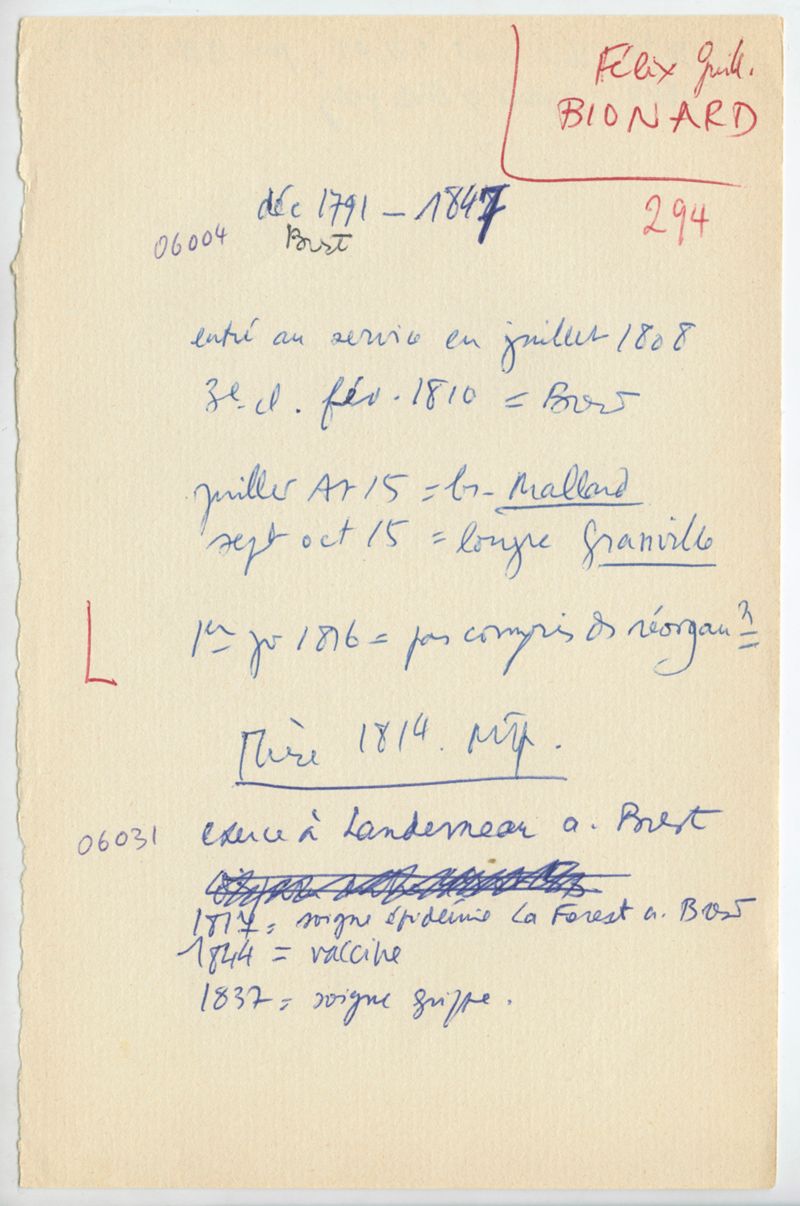 Félix Guill.
BIONARD
294
déc 1791 – 1847
06004 Brest
entré au service en juillet 1808
3e cl. fév. 1810 = Brest
juillet At 15 = br- Mallard
sept oct 15 = lougre Granville
1er jv 1816 = pas compris ds réorgan n
Thèse 1814. Mtp.
06031 exerce à Landerneau a. Brest
1817 = soigne épidémie La Forest a. Brest
1844 = vaccine
1837 = soigne grippe.